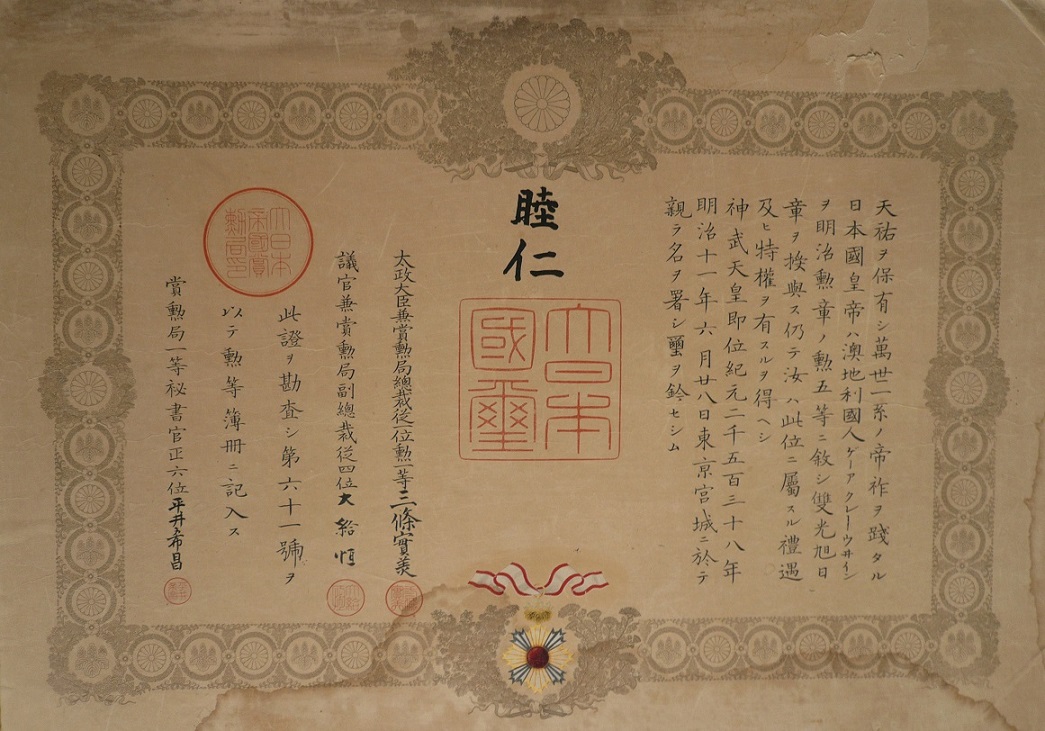 天祐ヲ保有シ萬世一系ノ帝祚ヲ踐タル
日本國皇帝ハ澳地利國人ゲーアクレーウサイン
ヲ明治勲章ノ勲五等ニ敘シ雙光旭日
章ヲ授與ス仍テ汝ハ此位ニ屬スル禮遇
及ヒ特權ヲ有スルヲ得ヘシ
神武天皇即位紀元二千五百三十八年
明治十一年六月廿八日東亰宮城ニ於テ
親ラ名ヲ署シ璽ヲ鈐セシム
睦仁
大日本
國璽
太政大臣兼賞勲局總裁従一位勲一等三條實美
議官兼賞勲局副總裁従四位大給恒
大日本
帝國賞
勲局印
此證ヲ勘査シ第六十一號ヲ
以テ勲等簿冊ニ記入ス
賞勲局一等秘書官正六位平井希昌